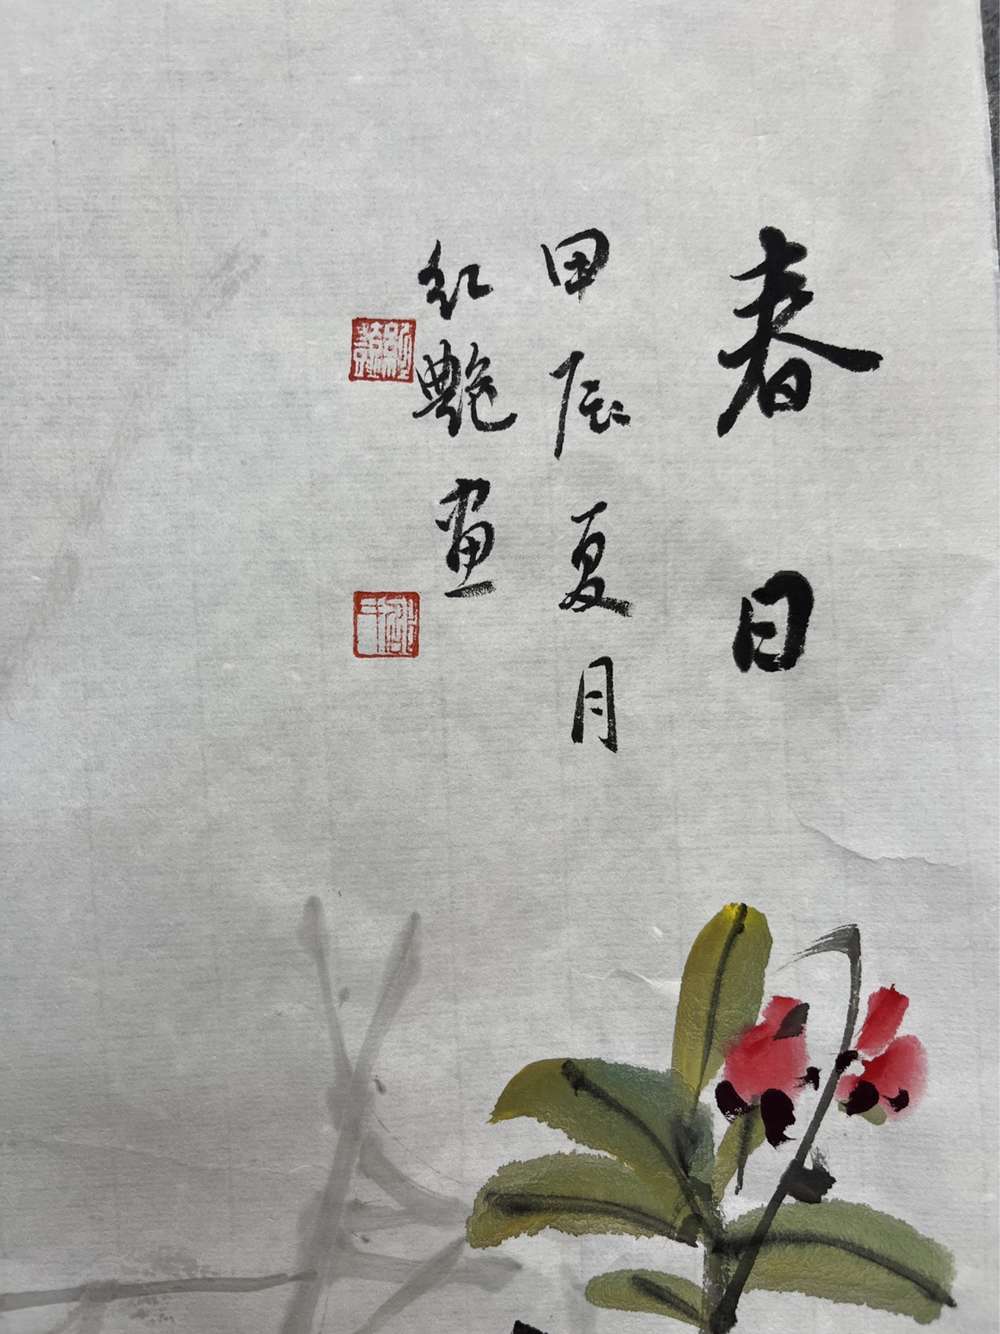 春日
甲辰夏月
红艳画